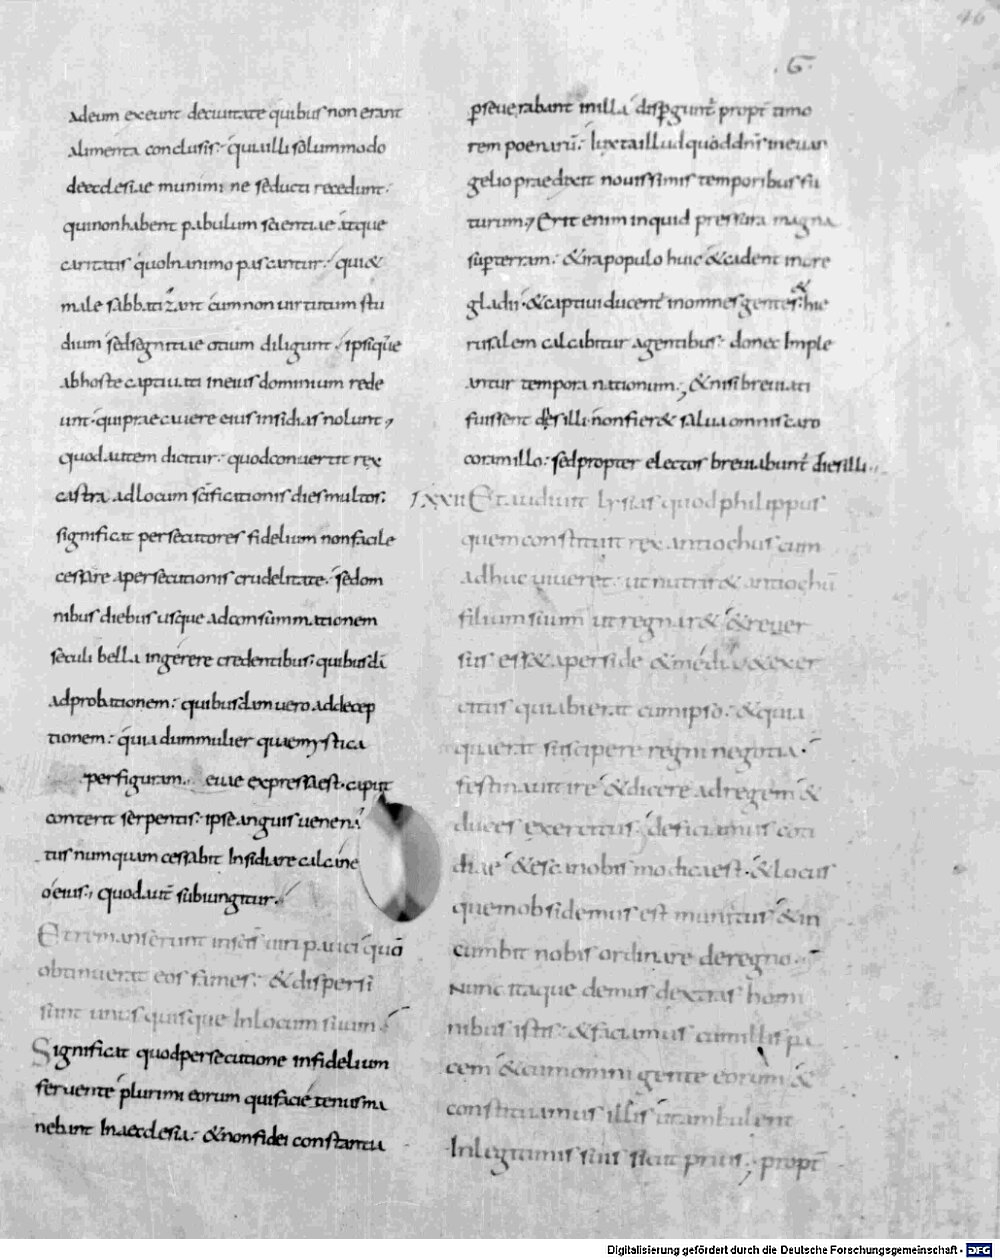 46
.G.
adeum exeunt decivitate quibus non erant
alimenta conclusis: quiailli solummodo
deecclesiae munimine seducti recedunt:
quinonhabent pabulum scientiae atque
caritatis quoanimo pascantur: qui&
male sabbatizant cumnon virtutum stu
dium sedsegnitiae otium diligunt. ipsique
abhoste captivati ineius dominium rede
unt. quipraecavere eius insidias nolunt,
quod autem dicitur: quodconvertit rex
castra adlocum scificationis dies multos:
significat persecutores fidelium nonfacile
cessare apersecutionis crudelitate. sedom
nibus diebus usque adconsummationem
seculi bella ingerere credentibus: quibusdā
adprobationem: quibusdam vero addecep
tionem: quia dum mulier quaemystica
perfiguram evae expressaest. caput
conterit serpentis: ipse anguis venena
tus numquam cessabit Insidiare calcane
o eius, quod aut subiungitur.
Et remanserunt inscis viri pauci quō
obtinuerat eos fames: & dispersi
sunt unus quisque Inlocum suum.
Significat quodpersecutione infidelium
fervente plurimi eorum quifacie tenus ma
nebant Inaecclesia: & nonfidei constantia
pseverabant inilla disperguntˀ propt timo
rem poenarū: Iuxtaillud quoddnsinevan
gelio praedixit novissimis temporibus fu
turum, Erit enim inquid pressura magna
superterram: & ira populo huic & cadent inore
gladii. & captivi ducentˀ inomnes gentes: & hie
rusalem calcabitur agentibus: donec Imple
antur tempora nationum; & nisi breviati
fuissent dies illi. nonfier& salva omnis caro
coram illo: sedpropter electos breviabuntˀ dies illi..
LXXII Et audiunt Lysias quod philippus
quem constituit rex antiochus cum
adhuc viveret. ut nutrir& antiochū
filium suum ut regnar& & rever
sus ess& aperside & media & exer
citus quiabierat cumipso: & quia
quaerit suscipere regni negotia.
festinavit ire & dicere adregem &
duces exercitus: deficiamus coti
diae & esca nobis modicaest. & locus
quemobsidemus est munitus & in
cumbit nobis ordinare deregno..
Nunc itaque demus dextras homi
nibus istis: & faciamus cumillis pa
cem & cumomni gente eorum &
constituamus illis ut ambulent
Inlegitimis suis sicut prius; propt
Digitalisierung gefördert durch die Deutsche Forschungsgemeinschaft - DFG